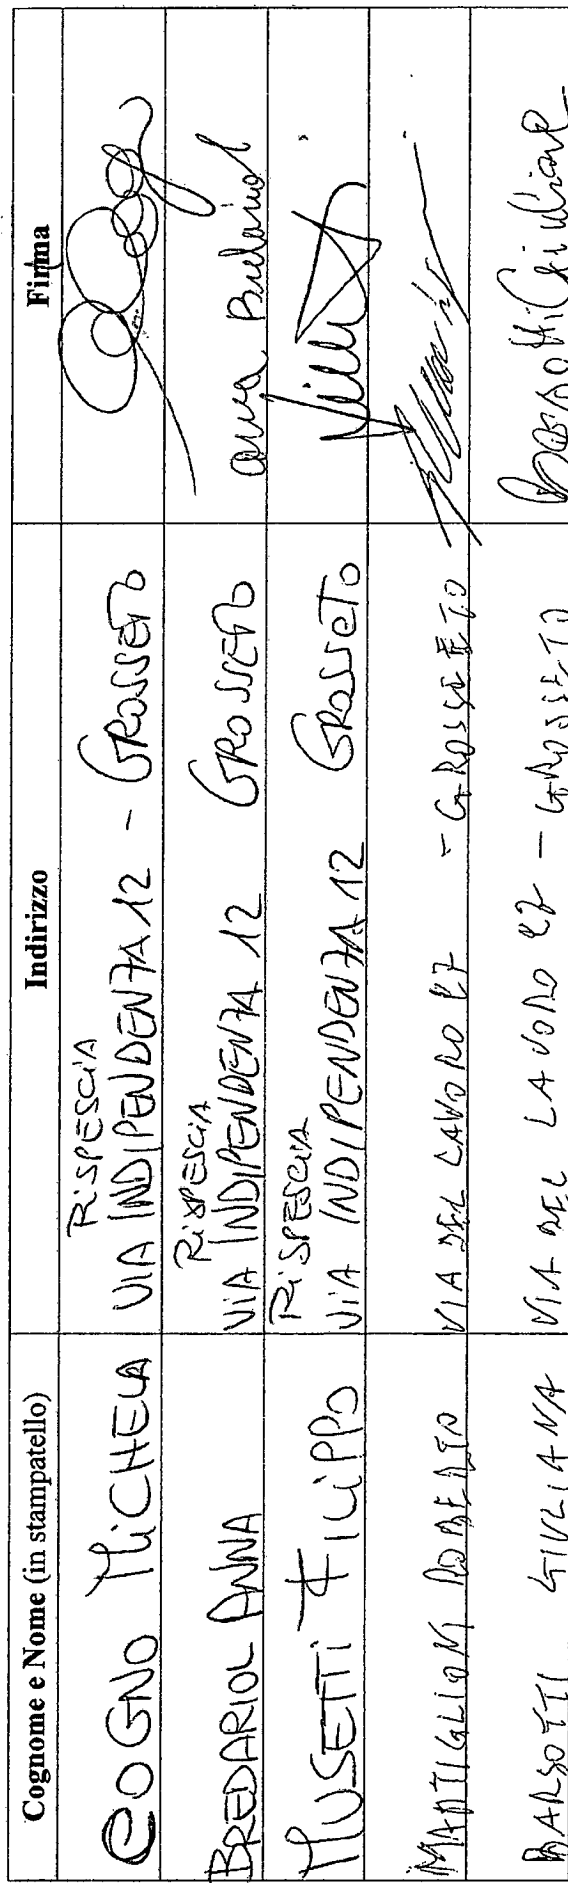 Cognome e Nome (in stampatello) Indirizzo Firma
COGNO MICHELA RISPESCIA VIA INDIPENDENZA 12 - GROSSETO
BREDARIOL ANNA RISPESCIA VIA INDIPENDENZA 12 GROSSETO Anna Bredariol
MUSETTI FILIPPO RISPESCIA VIA INDIPENDENZA 12 GROSSETO
MANTIGLIONI ROBERTO VIA DEL LAVORO 27 - GROSSETO
BARSOTTI GIULIANA VIA DEL LAVORO 27 - GROSSETO Barsotti Giuliana